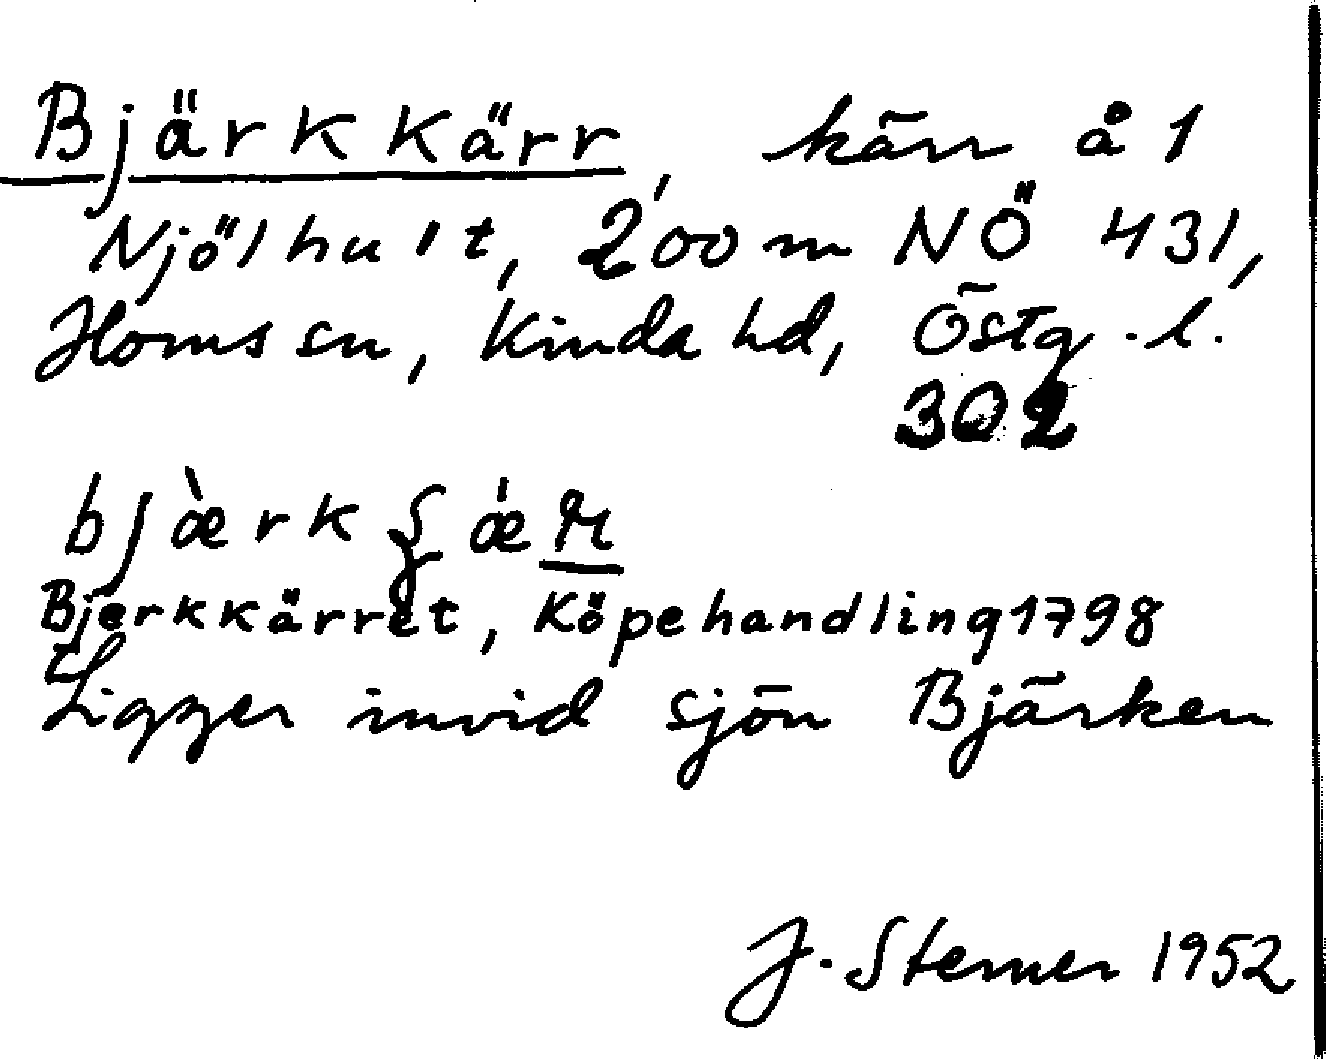 Bjärkkärr, kärr å 1
Njölhult, 200 m NÖ 431,
Horns sn, Kinda hd, Östg.l.
302
Bjerkkärret, Köpehandling 1798
Ligger invid sjön Bjärken
J. Sterner 1952